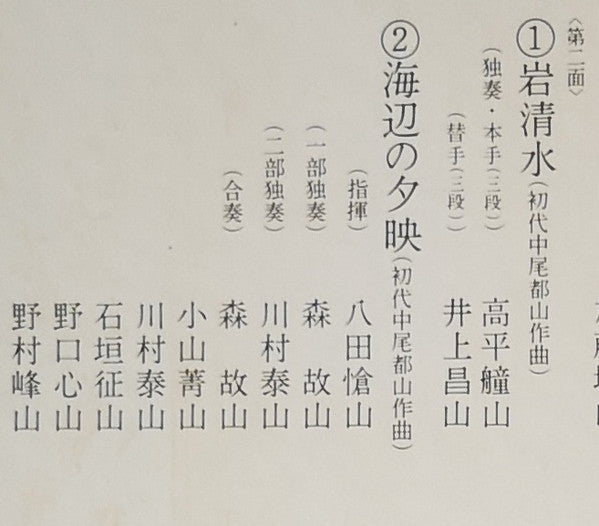 〈第二面〉
①岩清水(初代中尾都山作曲)
(独奏・本手(三段)) 高平艟山
(替手(三段)) 井上昌山
②海辺の夕映(初代中尾都山作曲)
(指揮) 八田愴山
(一部独奏) 森 故山
(二部独奏) 川村泰山
(合奏) 森 故山
小山菁山
川村泰山
石垣征山
野口心山
野村峰山